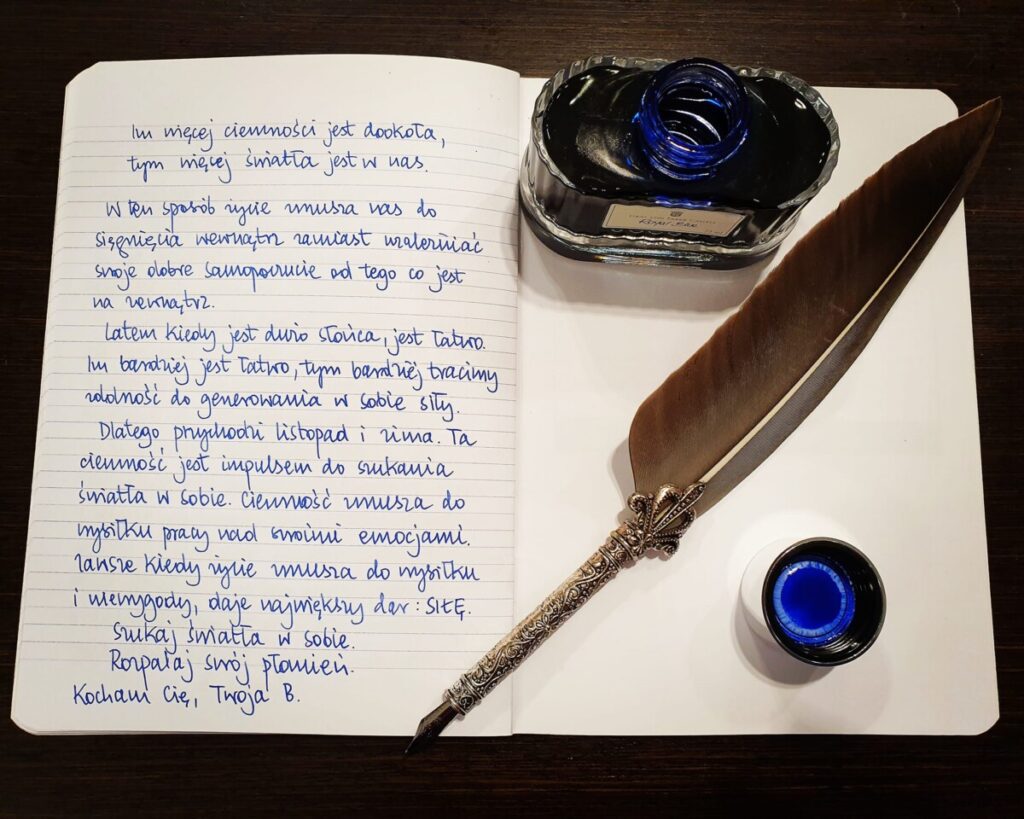 Im więcej ciemności jest dookoła,
tym więcej światła jest w nas.
W ten sposób życie zmusza nas do
sięgnięcia wewnątrz zamiast uzależniać
swoje dobre samopoczucie od tego co jest
na zewnątrz.
Latem kiedy jest dużo słońca, jest łatwo.
Im bardziej jest łatwo, tym bardziej tracimy
zdolność do generowania w sobie siły.
Dlatego przychodzi listopad i zima. Ta
ciemność jest impulsem do szukania
światła w sobie. Ciemność zmusza do
wysiłku pracy nad swoimi emocjami.
Zawsze kiedy życie zmusza do wysiłku
i niewygody, daje największy dar: SIŁĘ.
Szukaj światła w sobie.
Rozpalaj swój płomień.
Kocham Cię, Twoja B.